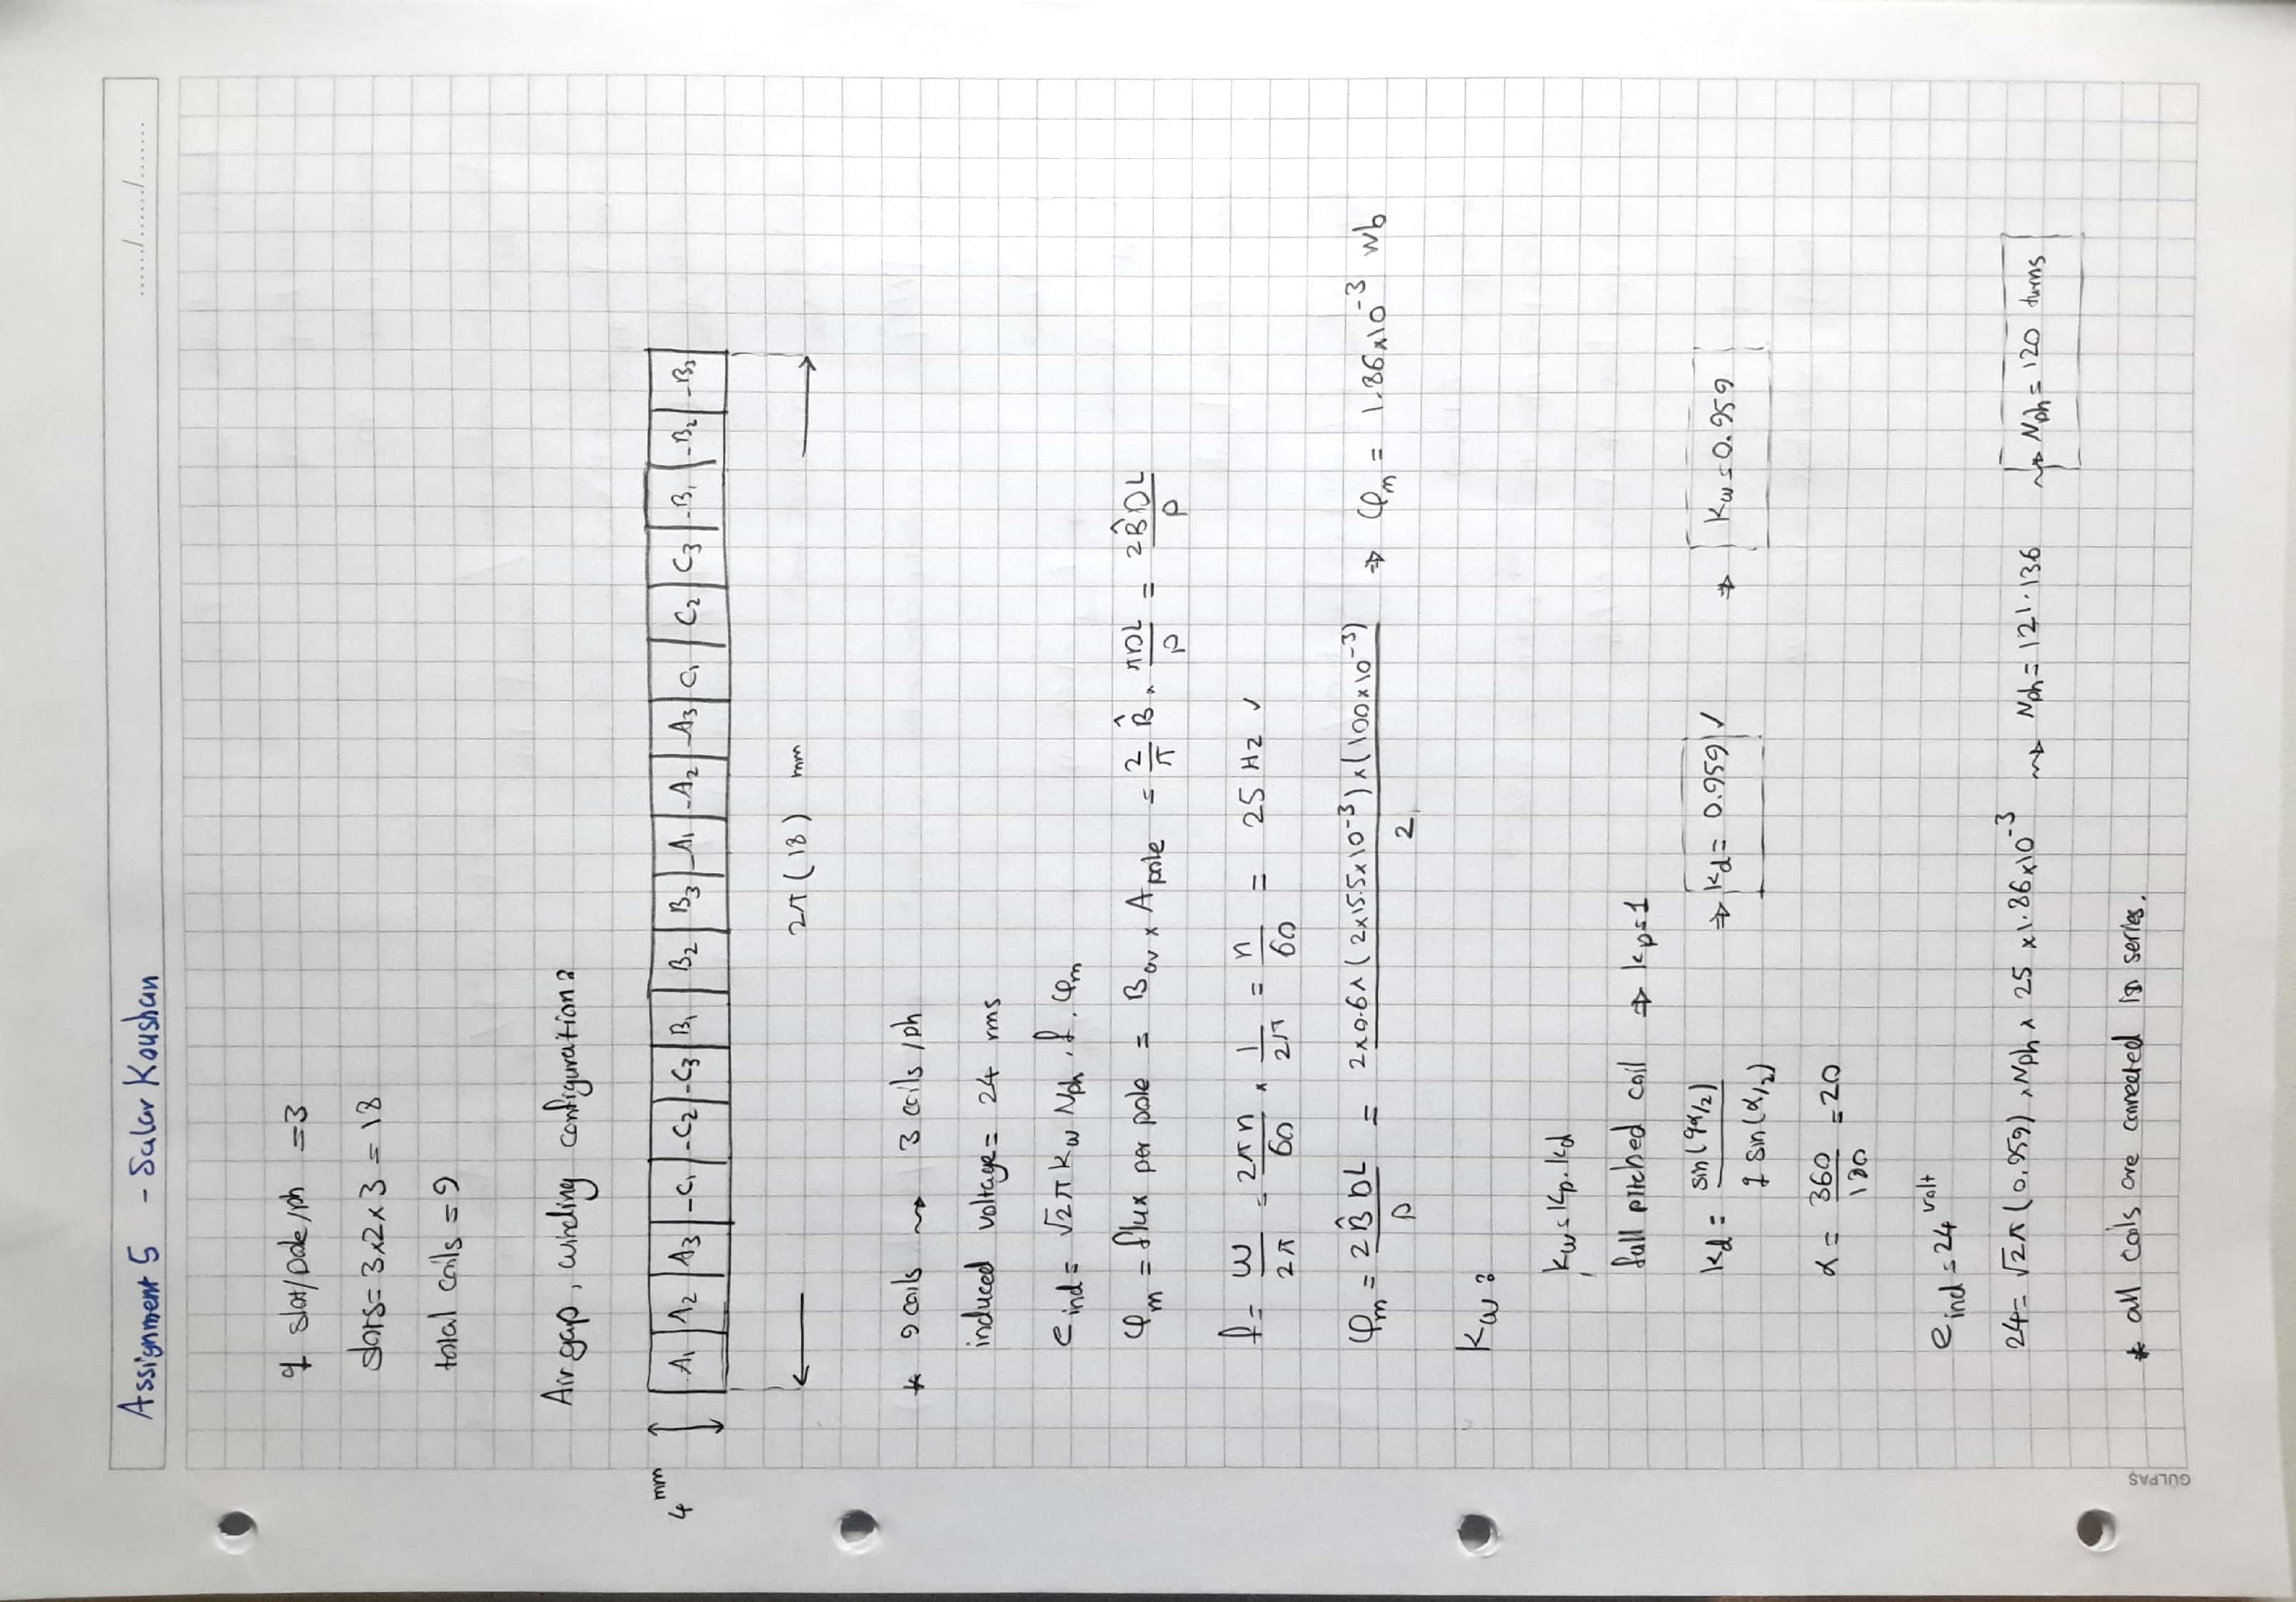 Assignment 5 - Salar Koushan ....../......./.......
q slot/pole/ph = 3
slots = 3x2x3 = 18
total coils = 9
Air gap, winding configuration:
4 mm
A1 A2 A3 -C1 -C2 -C3 B1 B2 B3 -A1 -A2 -A3 C1 C2 C3 -B1 -B2 -B3
2π(18) mm
* 9 coils ⇝ 3 coils/ph
induced voltage = 24 rms
e ind = √2 π kw Nph . f . φm
φm = flux per pole = Bav x Apole = 2/π B̂ x πDL/P = 2B̂DL/P
f = ω/2π = 2πn/60 x 1/2π = n/60 = 25 Hz ✓
φm = 2B̂DL/P = 2x0.6x(2x15.5x10^-3)x(100x10^-3)/2 ⇒ φm = 1.86x10^-3 wb
Kw:
kw = kp . kd
full pitched coil ⇒ kp = 1
kd = sin(qα/2)/q sin(α/2) ⇒ kd = 0.959 ✓ ⇒ Kw = 0.959
α = 360/180 = 20
e ind = 24 volt
24 = √2π(0.959) x Nph x 25 x 1.86x10^-3 ⇝ Nph = 121.136 ⇝ Nph = 120 turns
* all coils are connected in series.
GÜLPAŞ